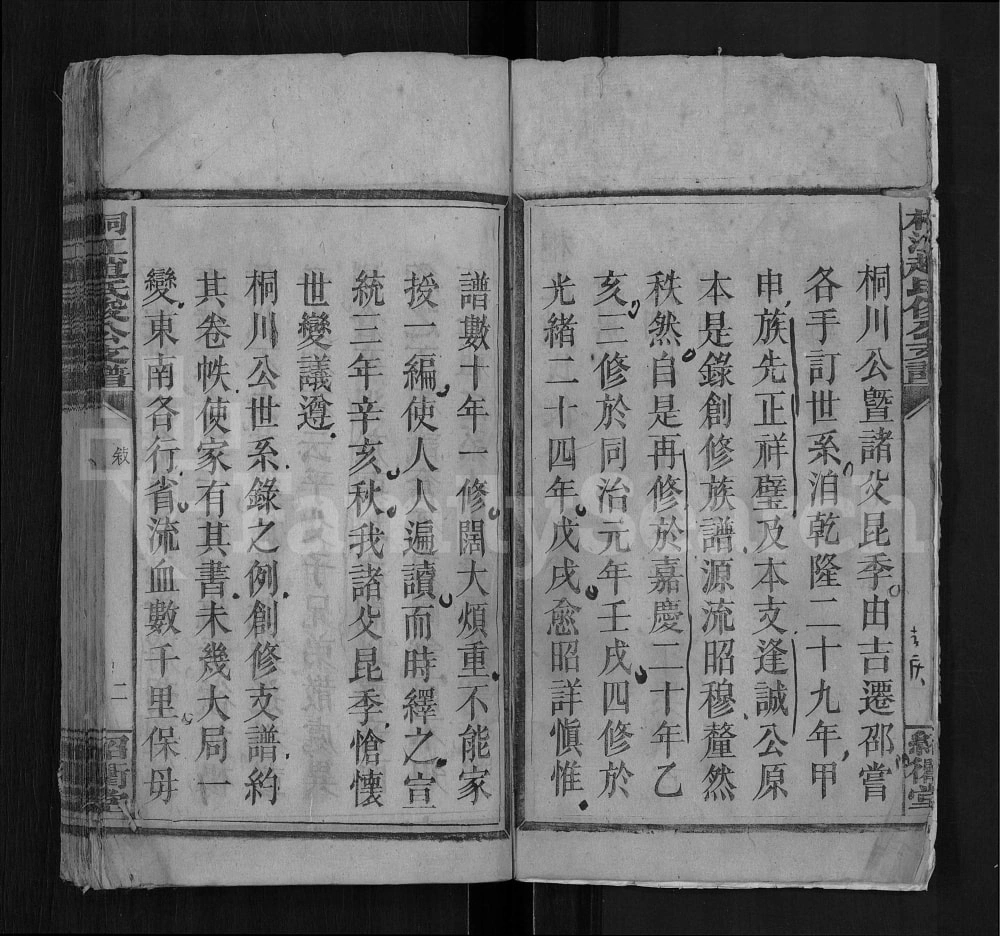 桐川公曁諸父昆季由吉遷邵嘗
各手訂世系洎乾隆二十九年甲
申族先正祥璧及本支逢誠公原
本是錄創修族譜源流昭穆釐然
秩然自是再修於嘉慶二十年乙
亥三修於同治元年壬戌四修於
光緒二十四年戊戌愈昭詳愼惟
譜數十年一修闊大煩重不能家
授一編使人人遍讀而時繹之宣
統三年辛亥秋我諸父昆季愴懷
世變議遵
桐川公世系錄之例創修支譜約
其卷帙使家有其書未幾大局一
變東南各行省流血數千里保毋
敘
二
FamilySearch